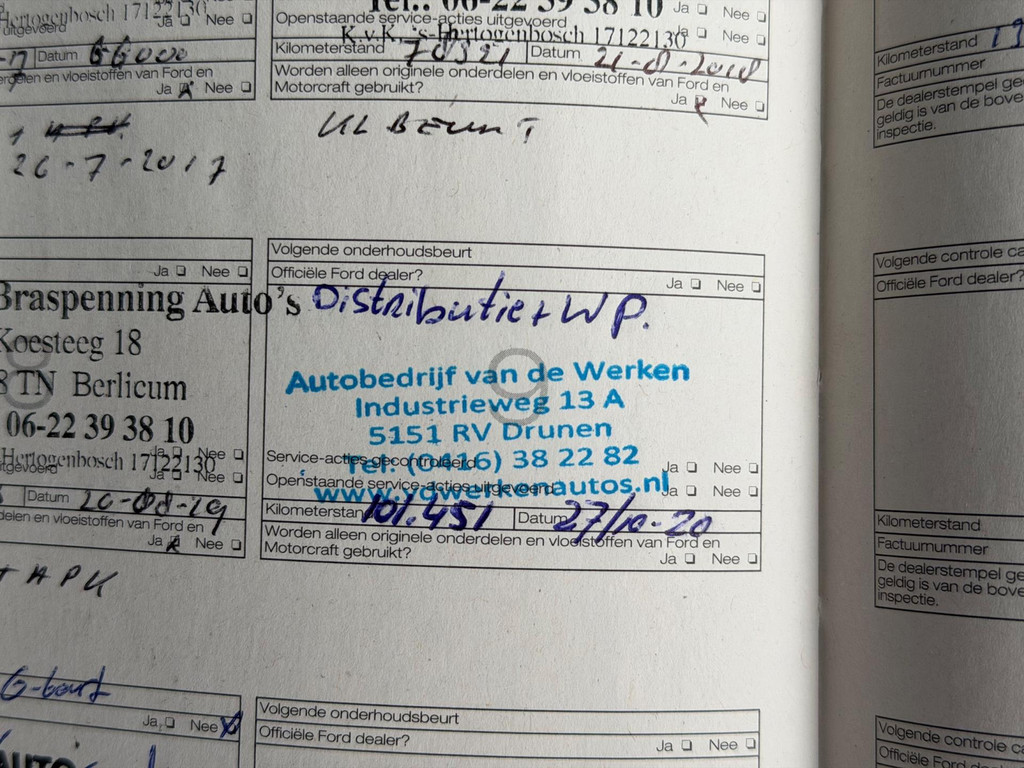 Hertogenbosch 17122130
Ja Nee
uitgevoerd
Ja Nee
Datum 66000
en vloeistoffen van Ford en
Ja Nee
26-7-2017
Tel.: 06-22 39 38 10
Ja Nee
Openstaande service-acties uitgevoerd
K.v.K. 's-Hertogenbosch 17122130
Ja Nee
Kilometerstand 78321 Datum 21-8-2018
Worden alleen originele onderdelen en vloeistoffen van Ford en
Motorcraft gebruikt?
Ja Nee
Kl BEURT
Kilometerstand
Factuurnummer
De dealerstempel ge
geldig is van de bove
inspectie.
Ja Nee
Braspenning Auto's
Koesteeg 18
TN Berlicum
06-22 39 38 10
Ja Nee
Hertogenbosch 17122130
uitgevoerd
Ja Nee
Datum 20-08-19
delen en vloeistoffen van Ford en
Ja Nee
+ APK
Volgende onderhoudsbeurt
Officiële Ford dealer?
Ja Nee
Distributie + WP.
9
Autobedrijf van de Werken
Industrieweg 13 A
5151 RV Drunen
Service-acties gecontroleerd
Tel: (0416) 38 22 82
Ja Nee
Openstaande service-acties uitgevoerd
www.vdwerkenautos.nl
Ja Nee
Kilometerstand 101.451 Datum 27/10-20
Worden alleen originele onderdelen en vloeistoffen van Ford en
Motorcraft gebruikt?
Ja Nee
Volgende controle ca
Officiële Ford dealer?
Kilometerstand
Factuurnummer
De dealerstempel ge
geldig is van de bove
inspectie.
G-beurt
Ja Nee
AUTO
Volgende onderhoudsbeurt
Officiële Ford dealer?
Ja Nee
Volgende controle ca
Officiële Ford dealer?